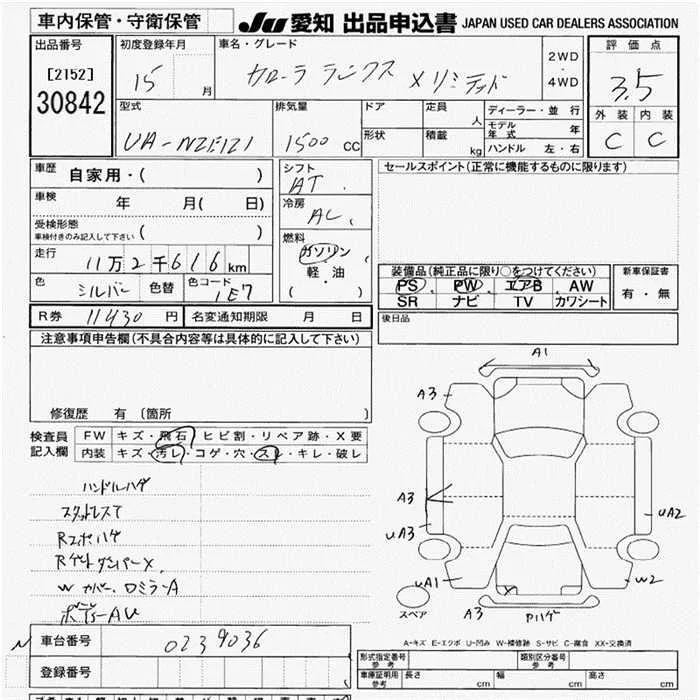 車内保管・守衛保管
JU 愛知 出品申込書 JAPAN USED CAR DEALERS ASSOCIATION
出品番号
[2152]
30842
初度登録年月
15 月
車名・グレード
カローラ ランクス Xリミテッド
2WD
・
4WD
評価点
3.5
外装 内装
C C
型式
UA-NZE121
排気量
1500 CC
ドア
形状
定員 人
積載 kg
ディーラー・並行
モデル年式 年
ハンドル 左・右
車歴 自家用・( )
車検 年 月( 日)
受検形態
車検付きのみ記入して下さい ( )
走行
11万2千616km
色 シルバー 色替 色コード 1E7
シフト
AT
冷房
AC
燃料
ガソリン
・
軽・油
( )
セールスポイント(正常に機能するものに限ります)
装備品(純正品に限り○をつけてください)
PS・PW・エアB・AW
SR ナビ TV カワシート
新車保証書
有・無
R券 11430 円 名変通知期限 月 日
後日品
注意事項申告欄(不具合内容等は具体的に記入して下さい)
修復歴 有 〔箇所 〕
検査員記入欄
FW キズ・飛石・ヒビ割・リペア跡・X要
内装 キズ・汚レ・コゲ・穴・スレ・キレ・破レ
ハンドルハゲ
スタットレスT
Rエンボハゲ
RゲートダンパーX
Wカバー、ロミラーA
ボデーAU
A1
A3
A3
UA3
UA2
UA1
W2
A3
Pハゲ
スペア
A-キズ E-エクボ U-凹み W-補修跡 S-サビ C-腐食 XX-交換済
車台番号 0239036
登録番号
型式指定番号
参考
類別区分番号
参考
車庫証明用
参考
長さ cm 幅 cm 高さ cm